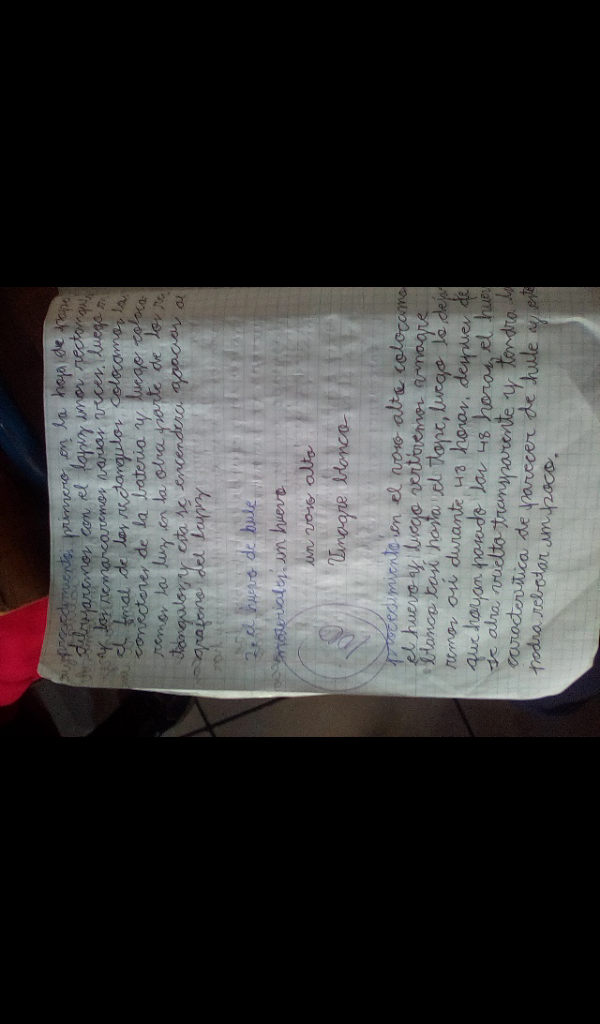 procedimiento, primero en la hoja de papel
dibujaremos con el lapiz unos rectangulos
y los remarcaremos varias veces, luego
el final de los rectangulos colocamos la
conectores de la bateria y luego coloca
remos la luz en la otra parte de los re
tangulos y esta se encendera gracias al
grafeno del lapiz
2: el huevo de hule
materiales: un huevo
un vaso alto
Vinagre blanco
procedimiento en el vaso alto colocamo
el huevo y luego vertiremos vinagre
blanco casi hasta el tope, luego lo deja
remos asi durante 48 horas, despues de
que hayan pasado las 48 horas, el huev
se abra vuelto transparente y tendra la
caracteritica de parecer de hule y
podra rebotar un poco.